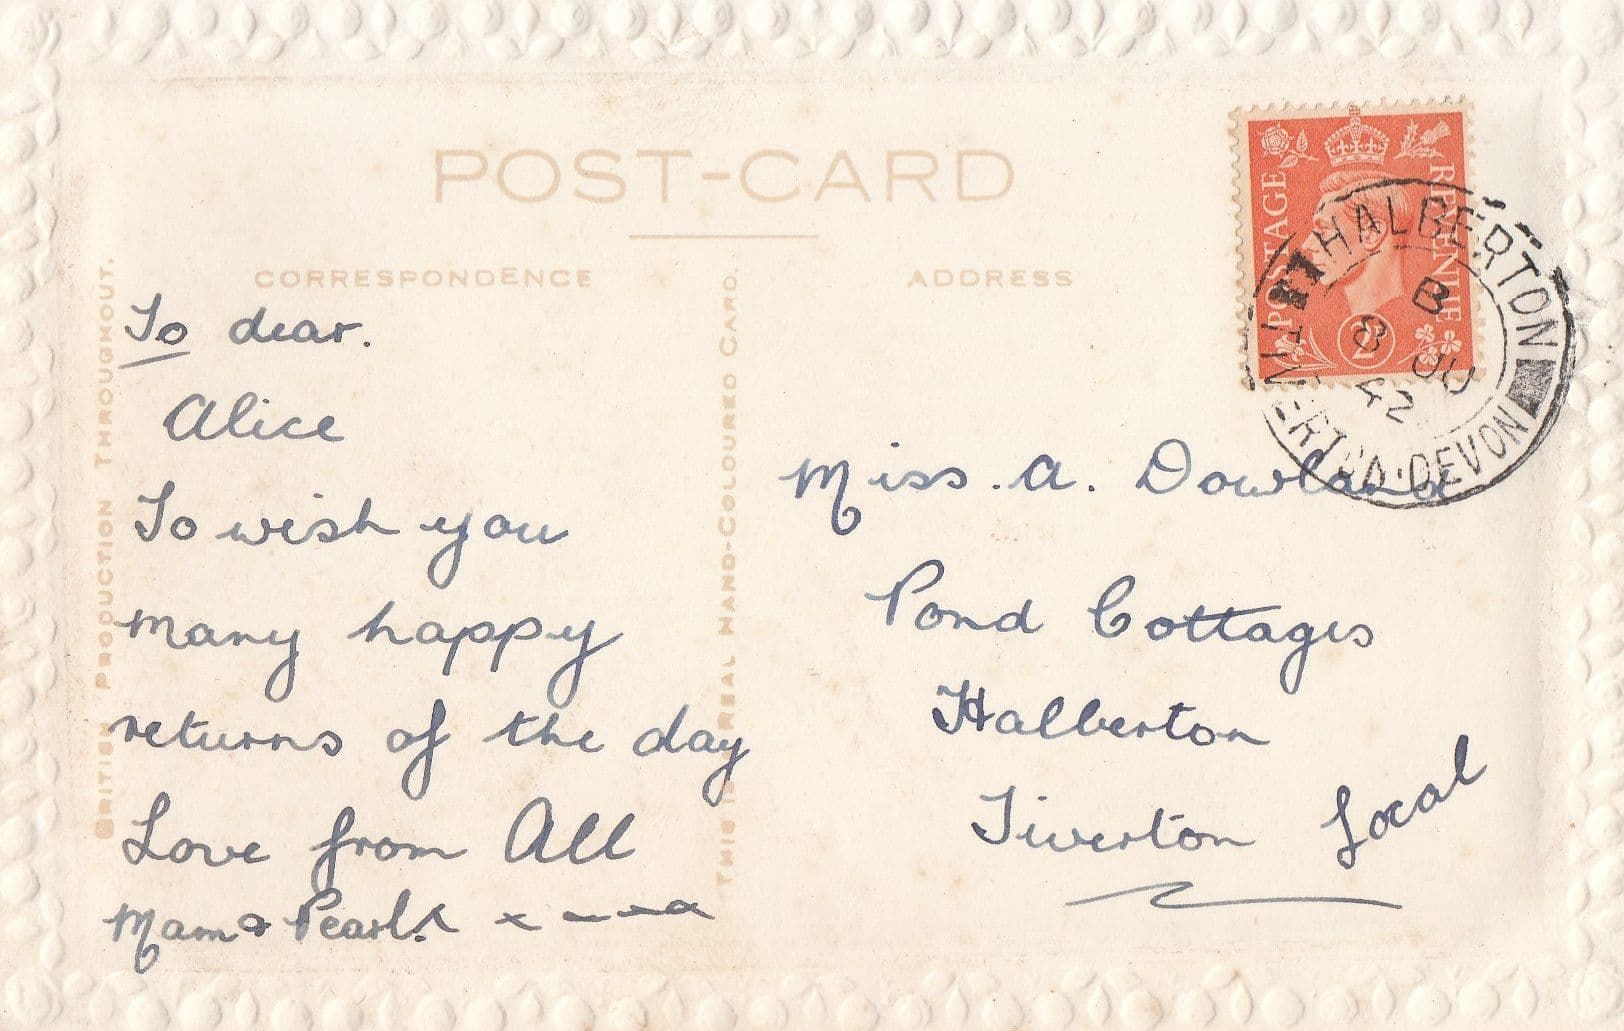 POST-CARD
CORRESPONDENCE
ADDRESS
BRITISH PRODUCTION THROUGHOUT.
THIS IS REAL HAND-COLOURED CARD.
To dear.
Alice
To wish you
many happy
returns of the day
Love from All
Mam & Pearl. x x
Miss. A. Dowland
Pond Cottages
Halberton
Tiverton Local
POSTAGE
REVENUE
2D
HALBERTON
B
8 JU
42
TIVERTON·DEVON